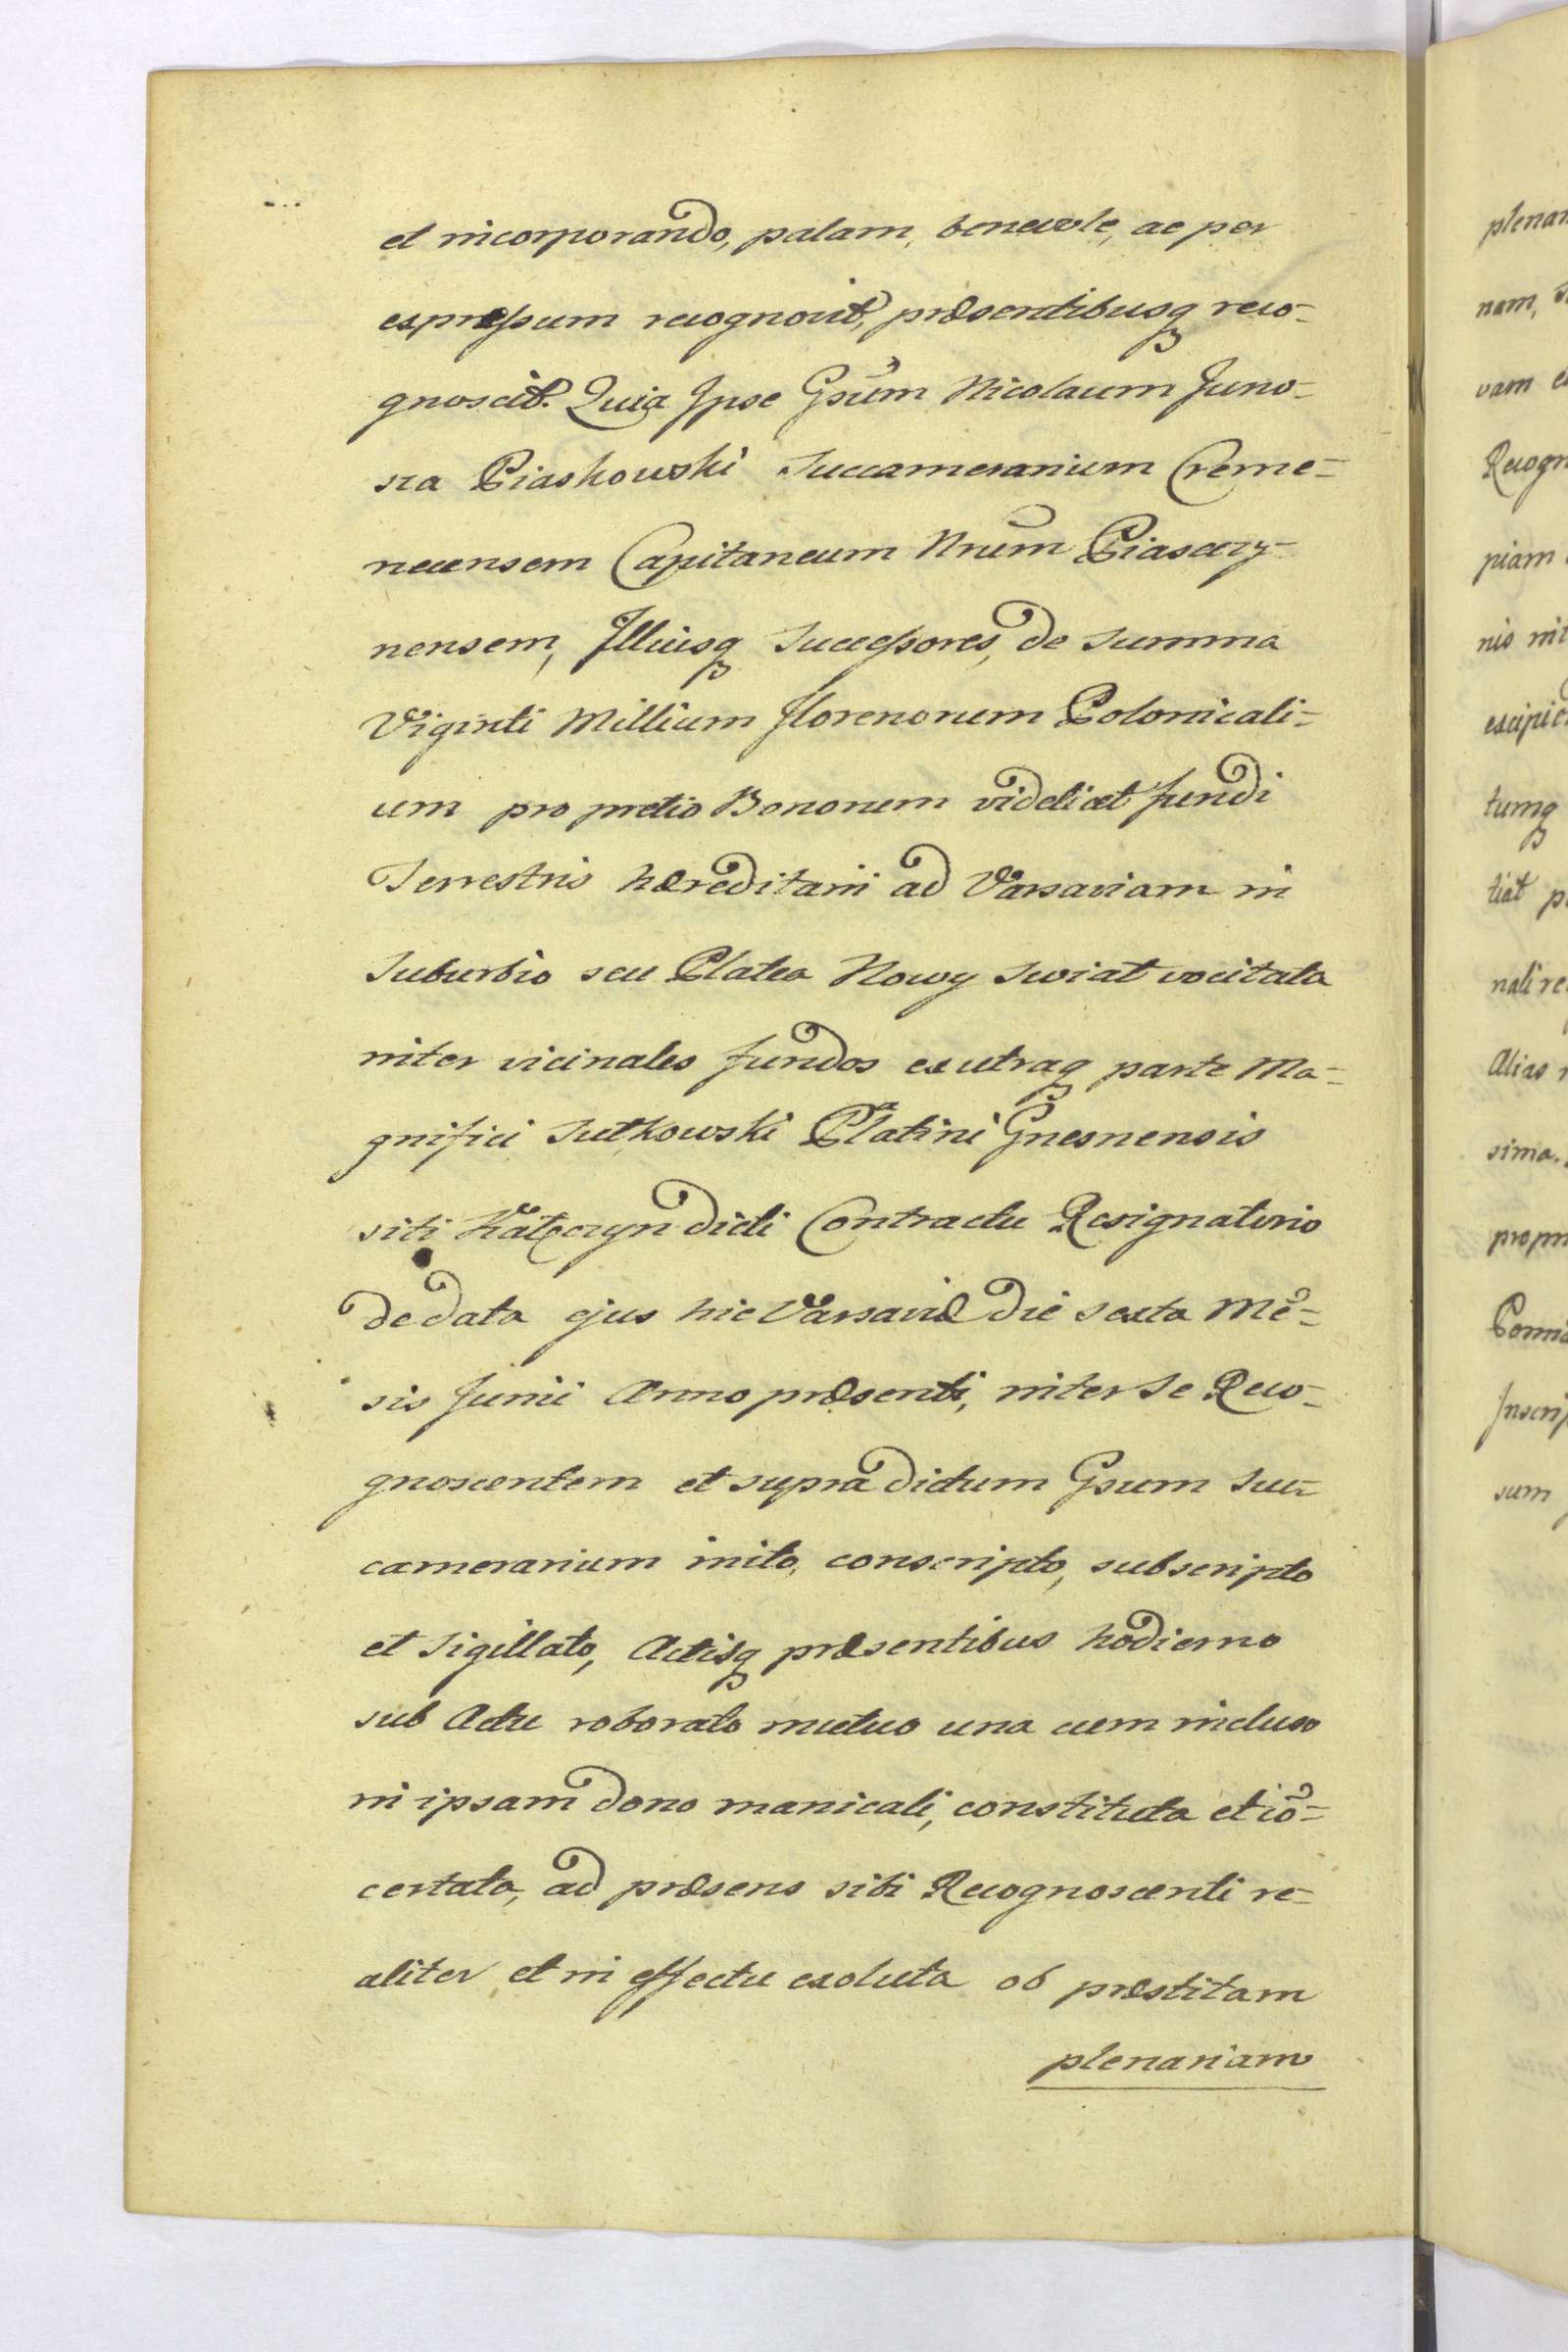 et incorporando, palam, benevole, ac per
expressum recognovit, præsentibusq reco-
gnoscit. Quia Ipse Gsum Nicolaum Juno-
sza Piaskowski Succamerarium Creme-
necensem Capitaneum Nrum Piaseczy-
nensem, Illiusq Successores, de Summa
Viginti Millium Florenorum Polonicali-
um pro pretio Bonorum videlicet fundi
Terrestris hæreditarii ad Varsaviam in
Suburbio seu Platea Nowy Swiat vocitata
inter vicinales fundos ex utraq parte Ma-
gnifici Sutkowski Platini Gnesnensis
siti Kałęczyn dicti Contractu Resignatorio
de data ejus hic Varsaviæ die sexta Mē-
sis Junii Anno præsenti, inter se Reco-
gnoscentem et supra dictum Gsum Suc-
camerarium inito, conscripto, subscripto
et Sigillato, Actisq præsentibus hodierno
sub Actu roborato mutuo una cum incluso
in ipsam dono manicali, constituta et
certata, ad præsens sibi Recognoscenti re-
aliter et in effectu exoluta ob præstitam
plenariam
plenar
nam,
vam
Recogn
piam
nis
excipie
tumq
tiat p
nali re
Alias
sima.
propri
Inscrip
sum